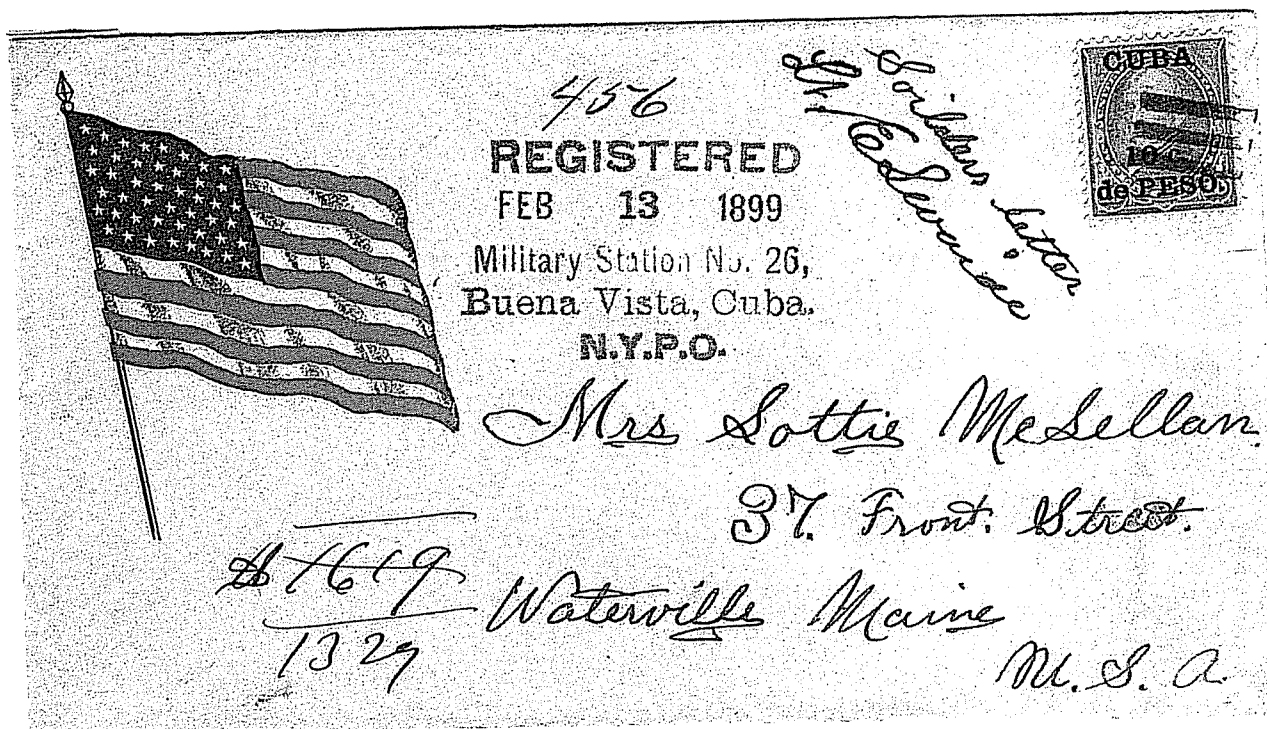 456
REGISTERED
FEB 13 1899
Military Station No. 26,
Buena Vista, Cuba.
N.Y.P.O.
Soilders Letter
CUBA
10 c.
de PESO.
Mrs Lottie McLellan.
37. Front. Street.
Waterville Maine
U.S.A.
1619
1329